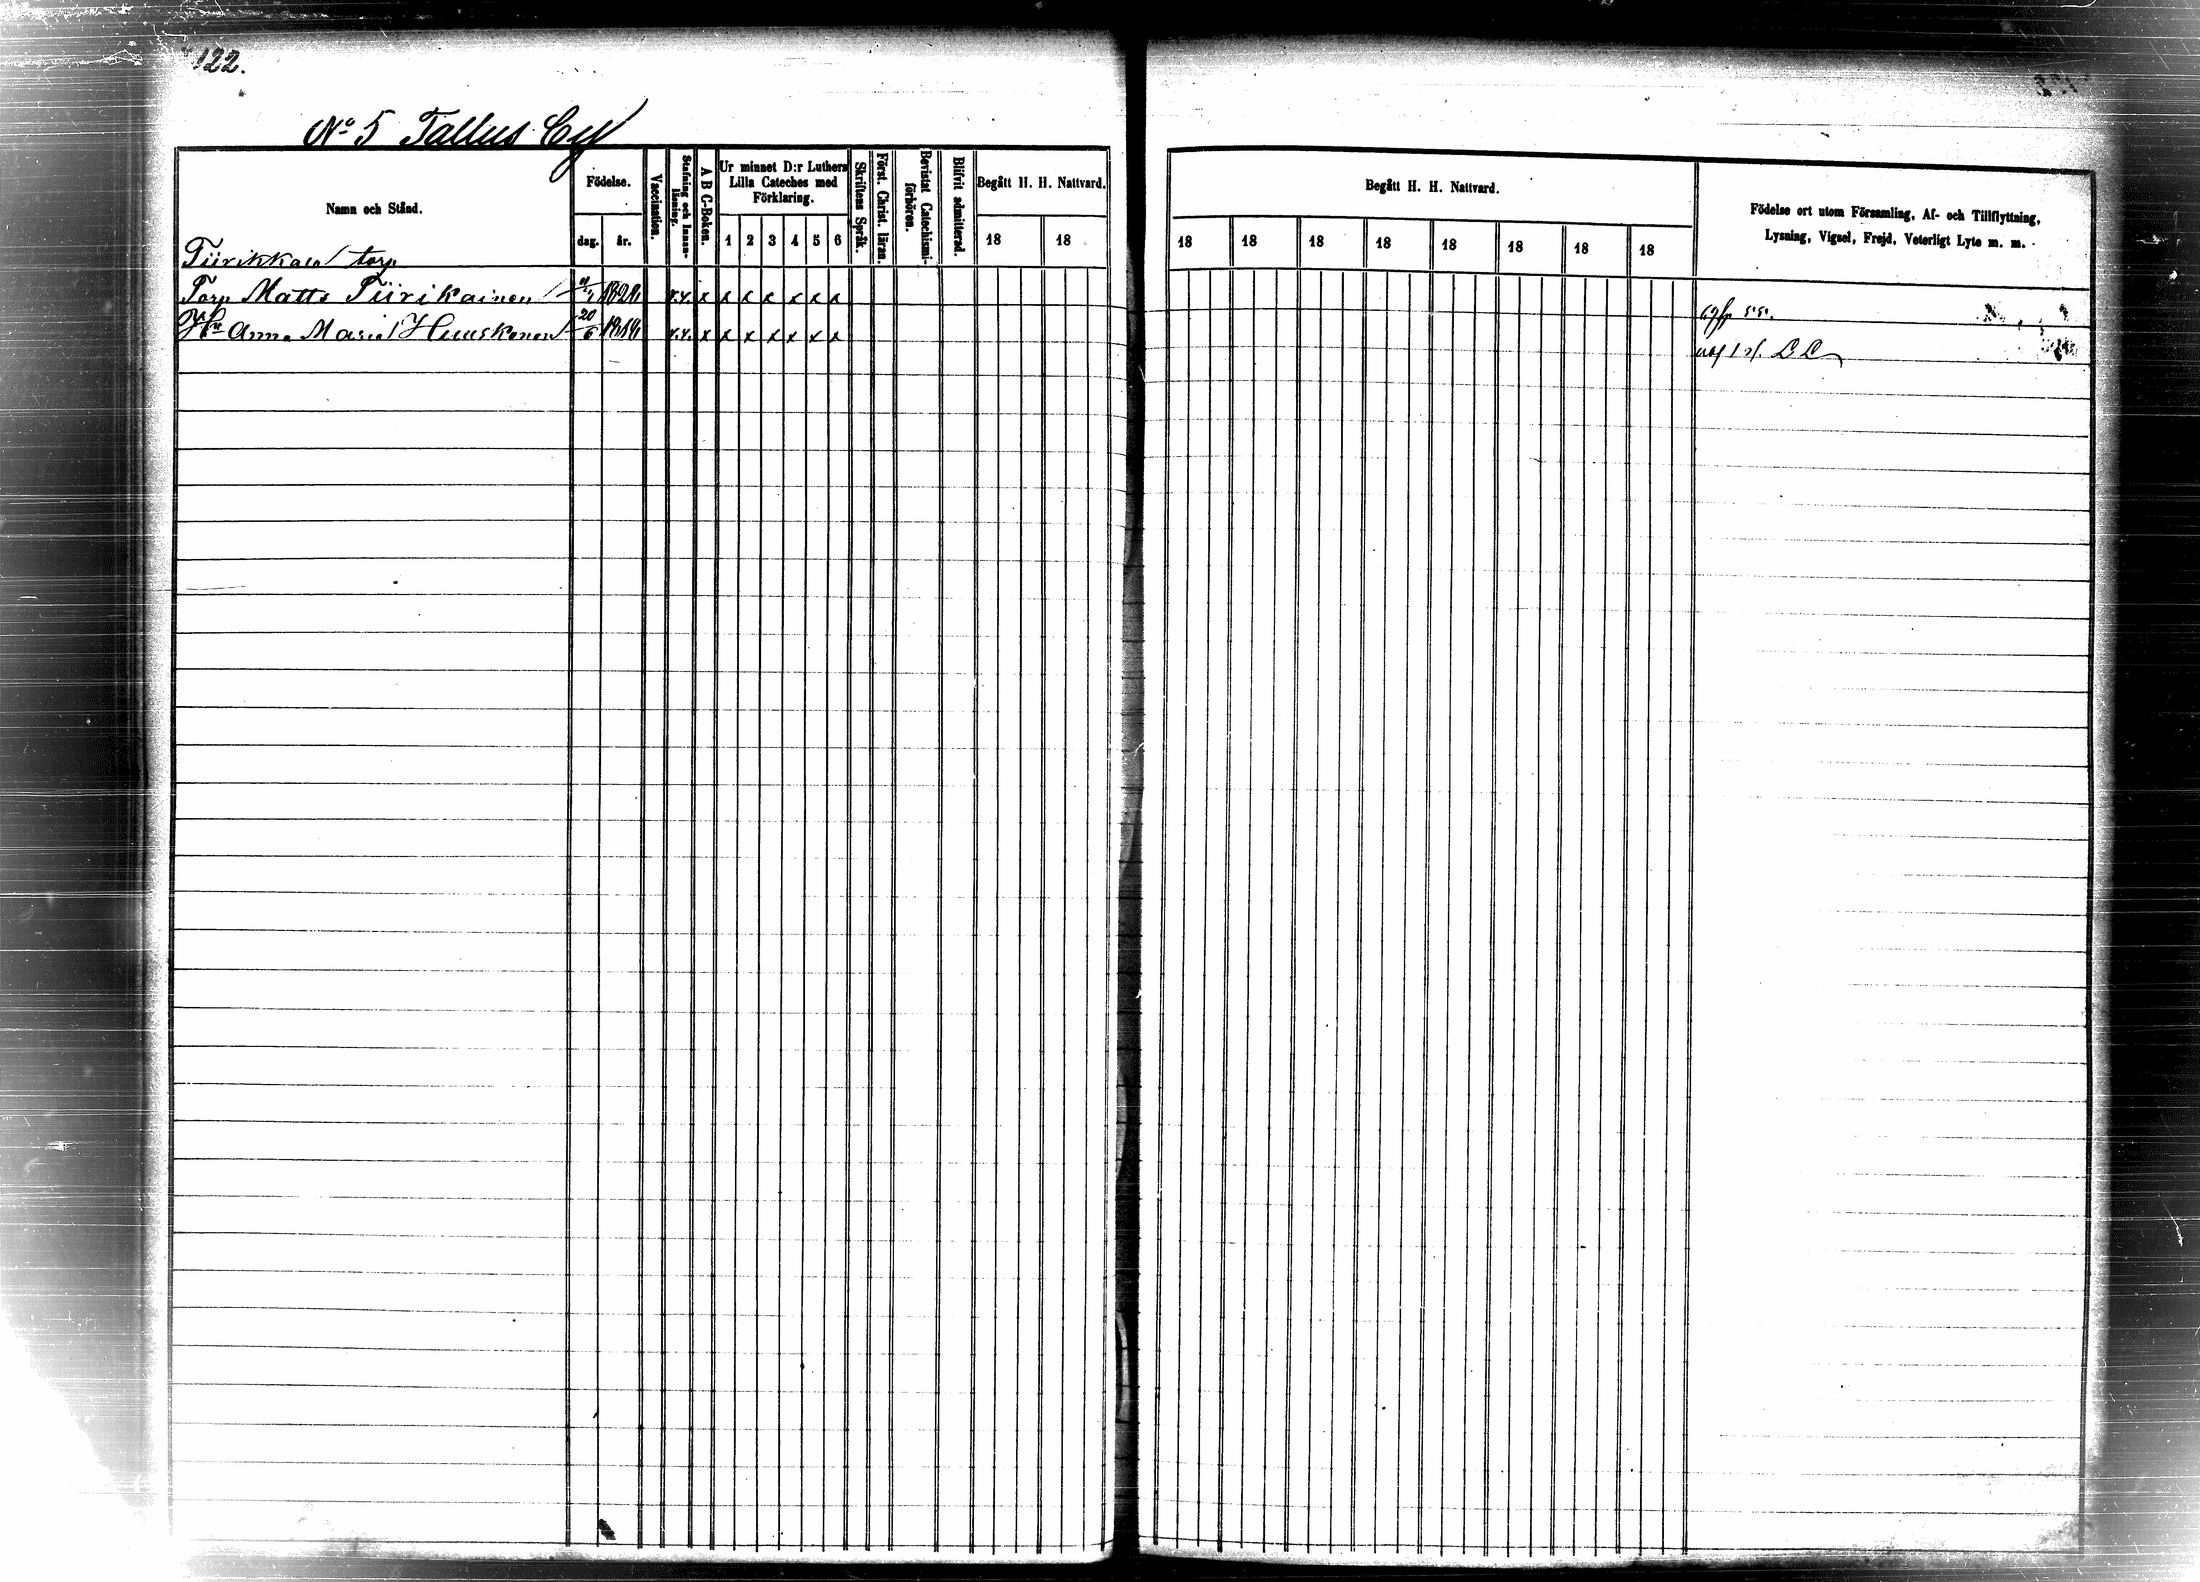 122.
No 5 Tallus By
Namn och Stånd.
Födelse.
dag. år.
Vaccination.
Stafning och Innanläsning.
A B C-Boken.
Ur minnet D:r Luthers
Lilla Cateches med
Förklaring.
1 2 3 4 5 6
Skriftens Språk.
Först. Christ. läran.
Bevistat Catechismi-
förhören.
Blifvit admitterad.
Begått H. H. Nattvard.
18 18
Begått H. H. Nattvard.
18 18 18 18 18 18 18 18
Födelse ort utom Församling, Af- och Tillflyttning,
Lysning, Vigsel, Frejd, Veterligt Lyte m. m.
Tiirikkala torp
Torp Matts Tiirikainen x.x. x x x x x x x
Hu Anna Maria Huuskonen 20/6 x.x. x x x x x x x